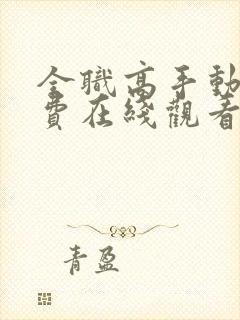 全職高手動
費在綫觀看
青盈